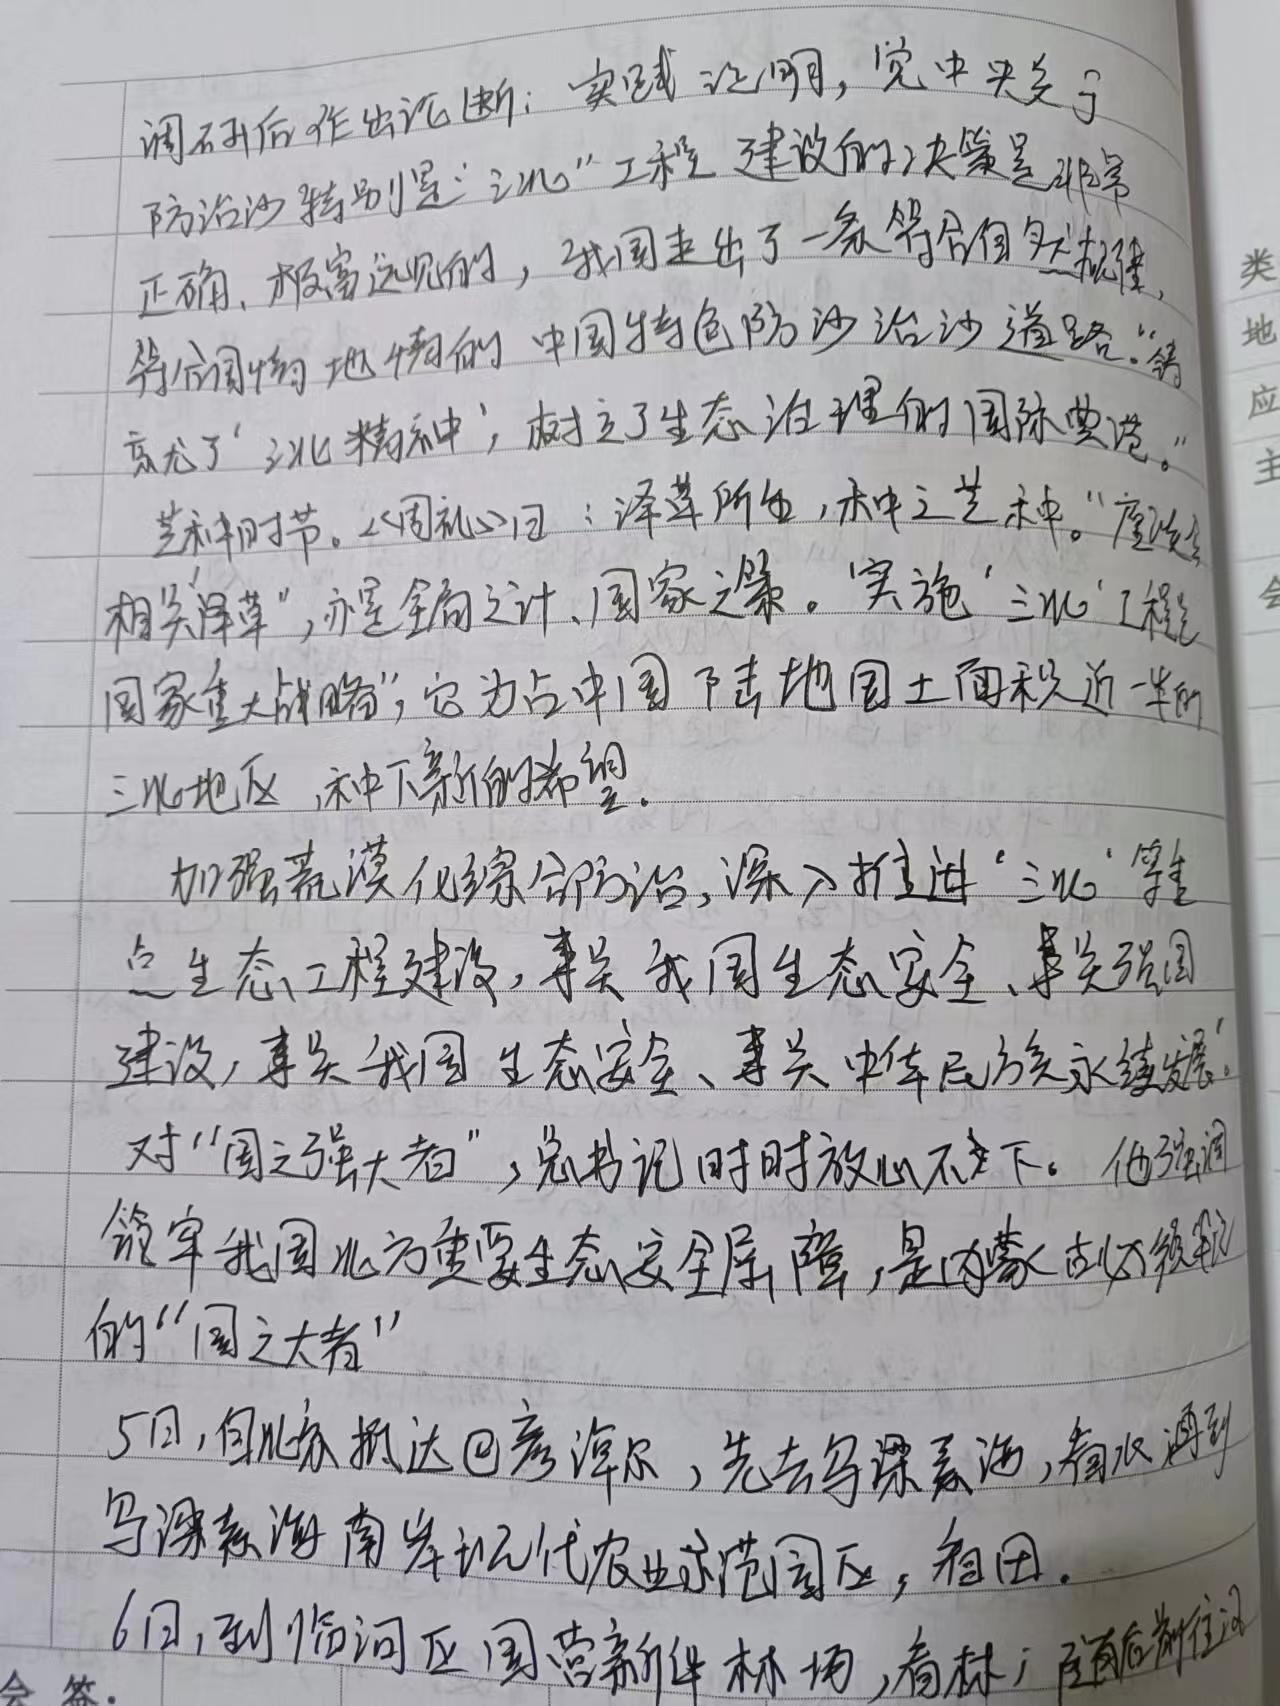 调研后作出论断：实践证明，党中央关于
防治沙特别是"三北"工程建设的决策是非常
正确、极富远见的，我国走出了一条符合自然规律、
符合国情地情的中国特色防沙治沙道路。"铸
就了'三北精神'，树立了生态治理的国际典范。"
芒种时节。《周礼》曰：泽草所生，种之芒种。"座谈会
相关"泽草"，亦是全局之计、国家之策。'实施'三北'工程是
国家重大战略"，它为占中国陆地国土面积近一半的
三北地区，种下新的希望。
加强荒漠化综合防治，深入推进'三北'等重
点生态工程建设，事关我国生态安全、事关强国
建设，事关我国生态安全、事关中华民族永续发展。'
对"国之强大者"，总书记时时放心不下。他强调
筑牢我国北方重要生态安全屏障，是内蒙古必须牢记
的"国之大者"
5日，自北京抵达巴彦淖尔，先去乌梁素海，看水 再到
乌梁素海南岸现代农业示范园区，看田.
6日，到临河区国营新华林场，看林；随后前往汉
类
地
应
主
会
会 签：